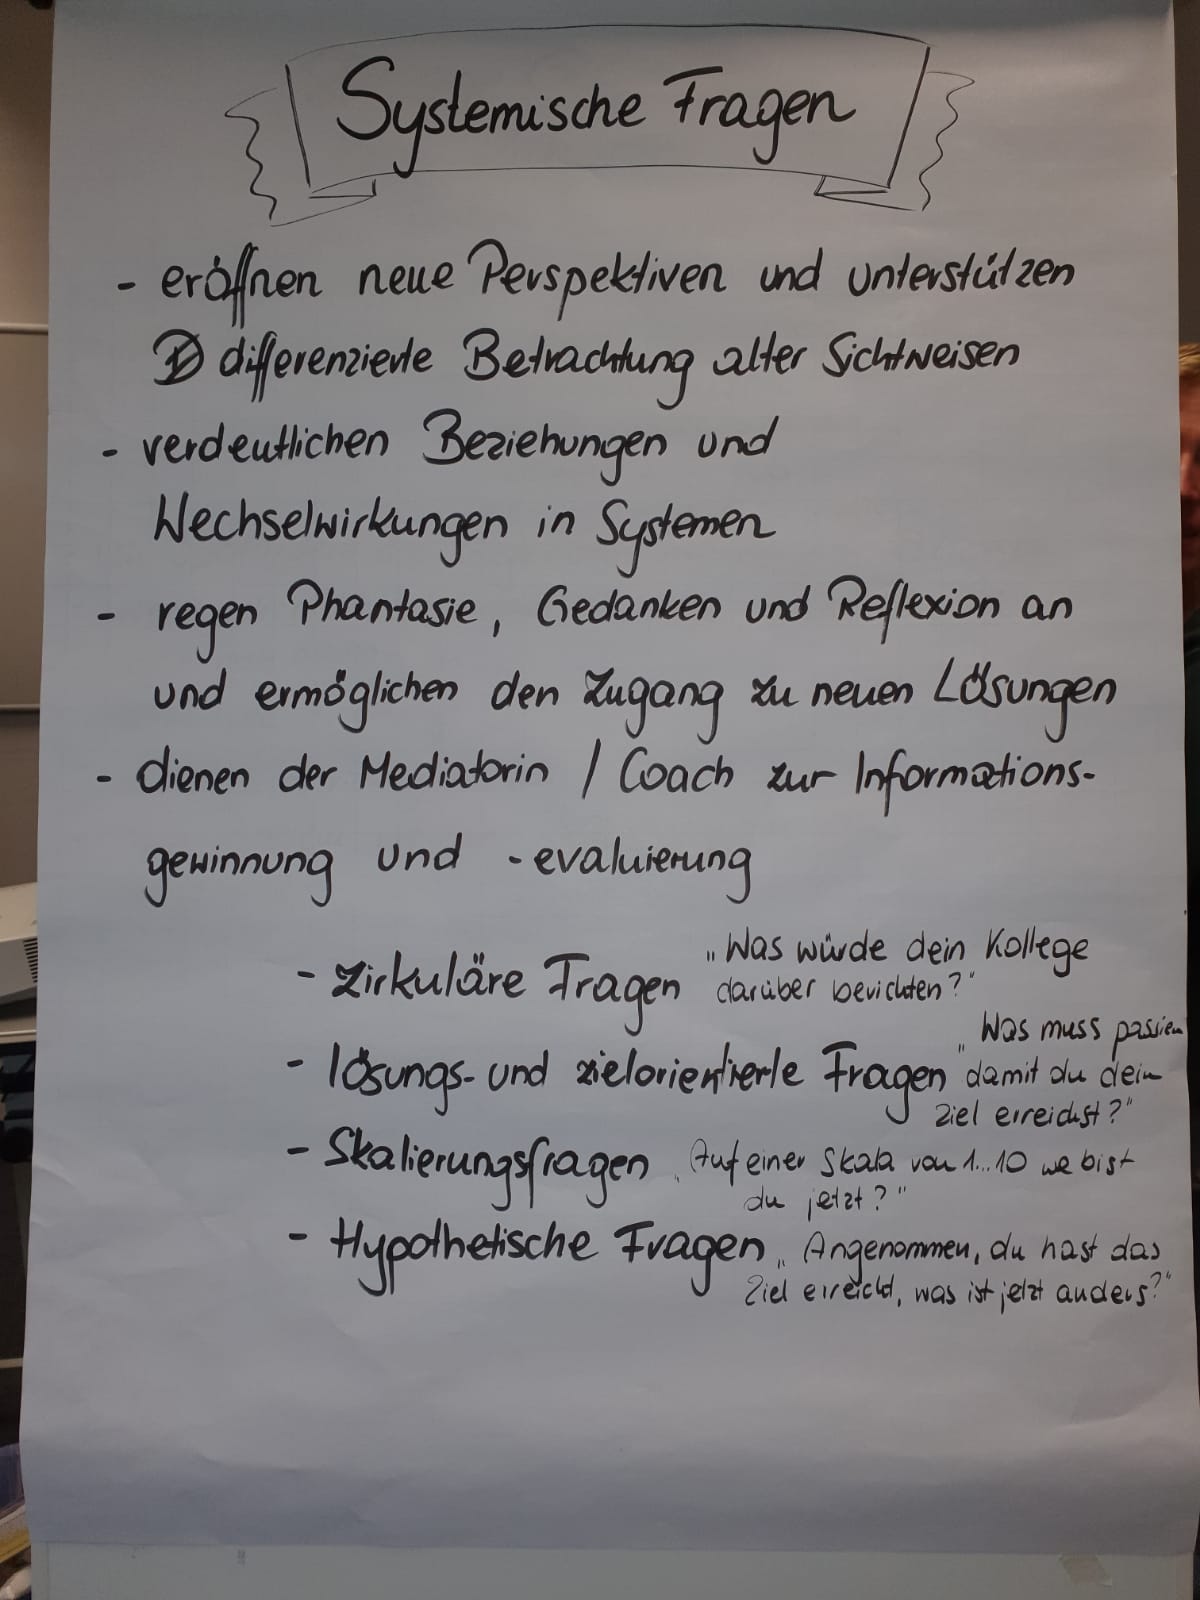 Systemische Fragen
- eröffnen neue Perspektiven und unterstützen
differenzierte Betrachtung alter Sichtweisen
- verdeutlichen Beziehungen und
Wechselwirkungen in Systemen
- regen Phantasie, Gedanken und Reflexion an
und ermöglichen den Zugang zu neuen Lösungen
- dienen der Mediatorin / Coach zur Informations-
gewinnung und -evaluierung
- Zirkuläre Fragen „Was würde dein Kollege
darüber berichten?“
„Was muss passieren
- lösungs- und zielorientierte Fragen damit du dein
Ziel erreichst?“
- Skalierungsfragen „Auf einer Skala von 1...10 wo bist
du jetzt?“
- Hypothetische Fragen „Angenommen, du hast das
Ziel erreicht, was ist jetzt anders?“